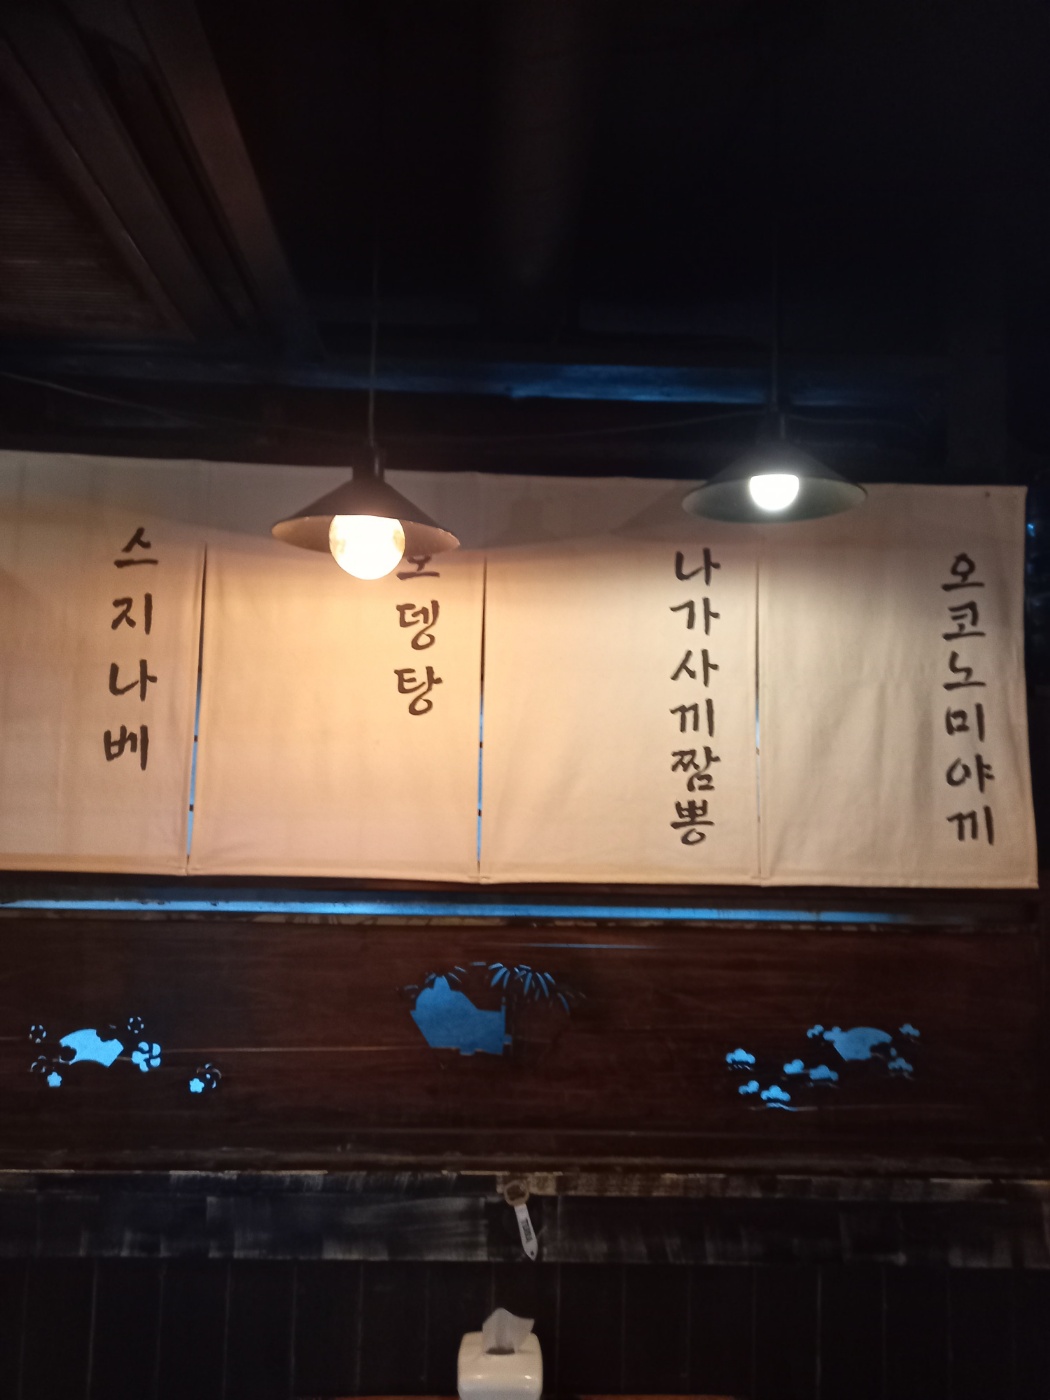 스지나베
오뎅탕
나가사끼짬뽕
오코노미야끼